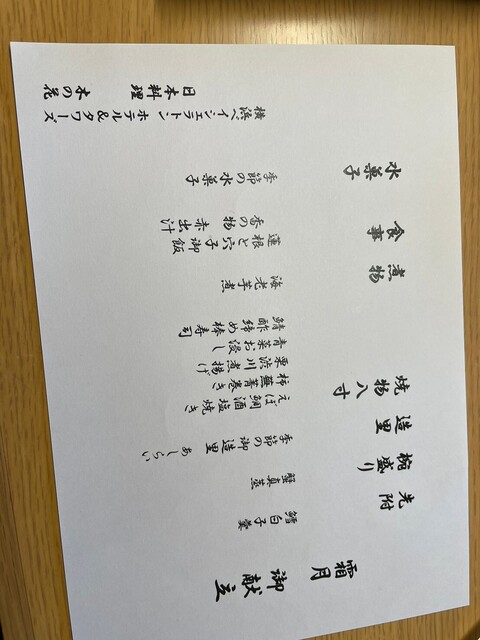 霜月 御献立
先附 鱈白子羹
椀盛り 蟹真蒸
造里 季節の御造里 あしらい
焼物八寸 えぼ鯛酒塩焼き
柿蕪菁巻き
栗渋川煮揚げ
青菜お浸し
鯖酢締め棒寿司
煮物 海老芋煮
食事 蓮根と穴子御飯
香の物 赤出汁
水菓子 季節の水菓子
横浜ベイシェラトン ホテル&タワーズ
日本料理 木の花